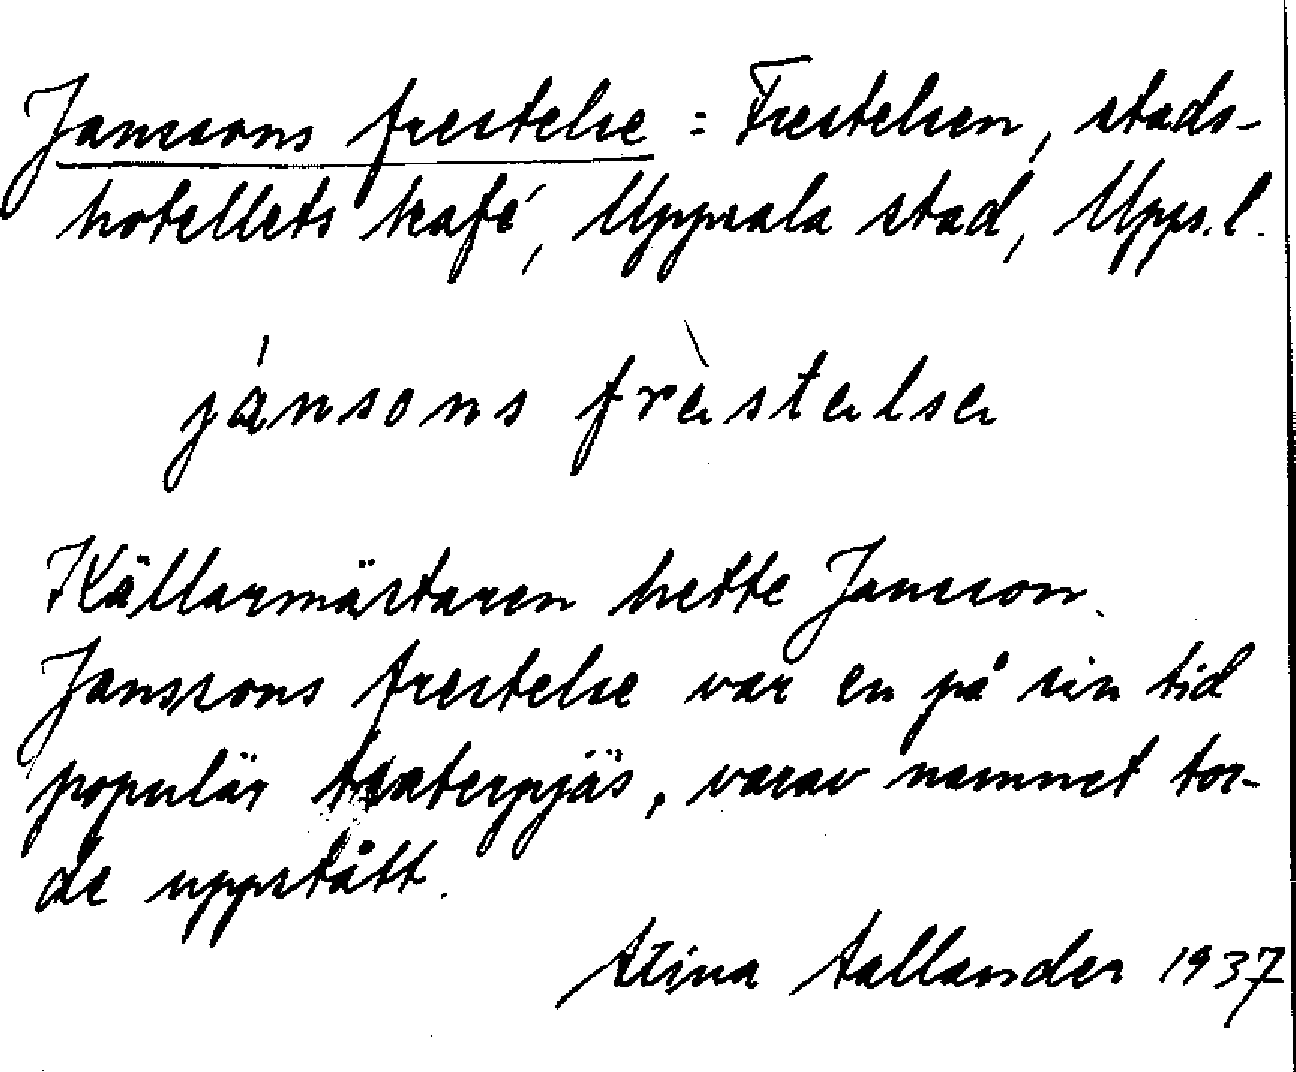 Janssons frestelse = Frestelsen, stads-
hotellets kafé, Uppsala stad, Upps.l.
jánsons frèstelse
Källarmästaren hette Jansson.
Janssons frestelse var en på sin tid
populär teaterpjäs, varav namnet tor-
de uppstått.
Stina Sallander 1937